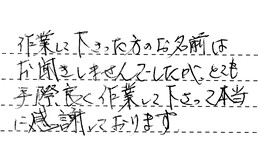 作業して下さった方のお名前は
お聞きしませんでしたが、とても
手際良く作業して下さって本当
に感謝しております